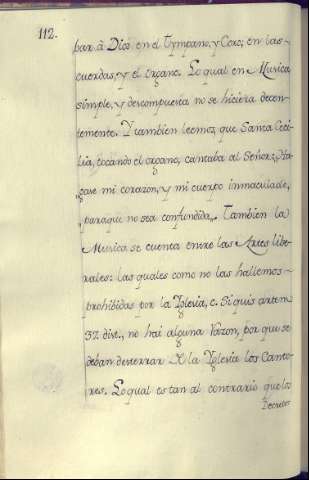 112.
bar à Dios en el Tympano, y Coro; en las-
cuerdas, y el organo. Lo qual en Musica
simple, y descompuesta no se hiciera decen-
temente. Y tambien leemos, que Santa Ceci-
lia, tocando el organo, cantaba al Señor: „Ha-
„gase mi corazon, y mi cuerpo immaculado,
„paraque no sea confundida„. Tambien la
Musica se cuenta entre las Artes libe-
rales: las quales como no las hallemos-
prohibidas por la Yglesia, c. Si quis artem
37. dist., no hai alguna razon, por que se
deban desterrar De la Yglesia los Canto-
res. Lo qual es tan al contrario que los
Decretos